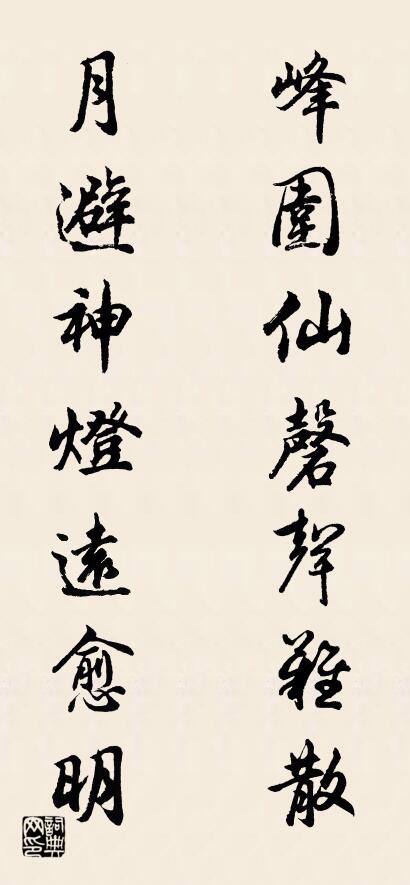 峰圍仙磬聲難散
月避神燈遠愈明
詞典网印